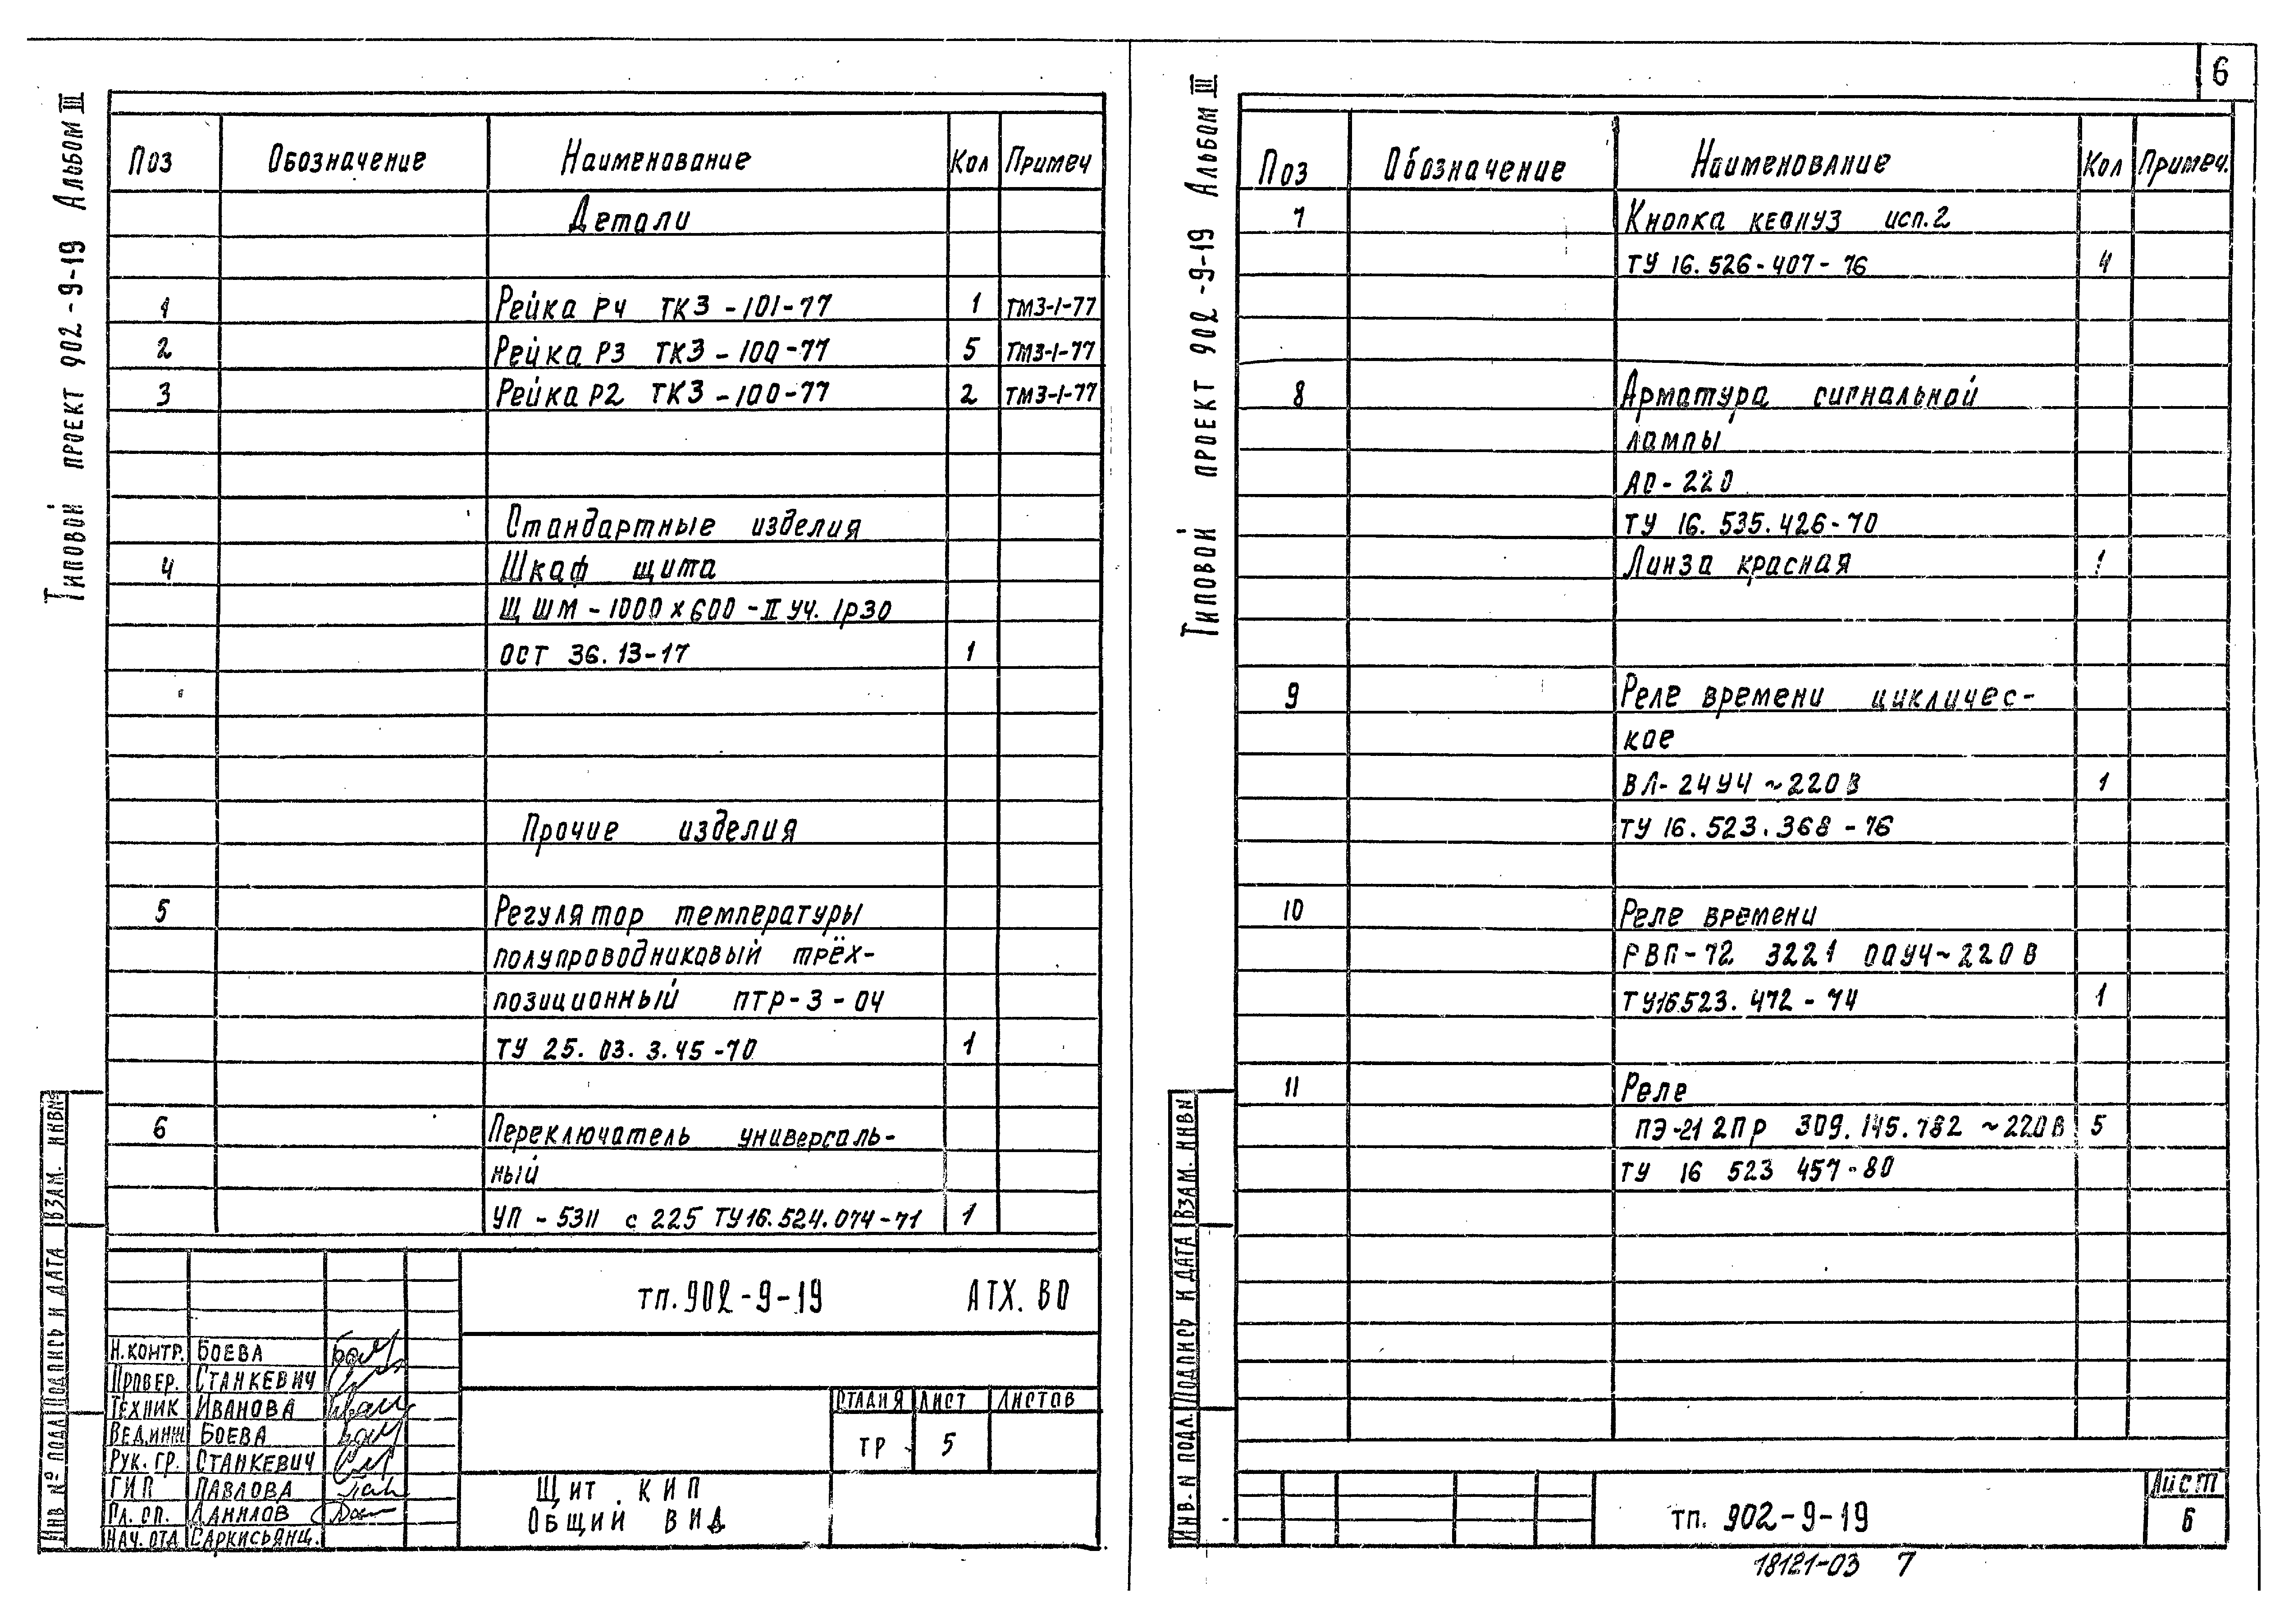 6
Типовой проект 902-9-19 Альбом III
Поз Обозначение Наименование Кол Примеч
Детали
1 Рейка Р4 ТК3-101-77 1 ТМ3-1-77
2 Рейка Р3 ТК3-100-77 5 ТМ3-1-77
3 Рейка Р2 ТК3-100-77 2 ТМ3-1-77
Стандартные изделия
4 Шкаф щита
ЩШМ-1000х600-II УЧ. 1Р30
ОСТ 36.13-17 1
Прочие изделия
5 Регулятор температуры
полупроводниковый трёх-
позиционный ПТР-3-04
ТУ 25.03.3.45-70 1
6 Переключатель универсаль-
ный
УП-5311 с 225 ТУ16.524.074-71 1
ТП.902-9-19 АТХ.ВО
Н.контр. Боева
Провер. Станкевич
Техник Иванова
Вед.инж Боева
Рук.гр. Станкевич
ГИП Павлова
Гл.сп. Данилов
Нач.отд Саркисьянц.
Стадия Лист Листов
ТР 5
Щит КИП
Общий вид
Инв № подл Подпись и дата Взам. инв№
Типовой проект 902-9-19 Альбом III
Поз Обозначение Наименование Кол Примеч.
7 Кнопка КЕ011У3 исп.2
ТУ 16.526-407-76 4
8 Арматура сигнальной
лампы
АС-220
ТУ 16.535.426-70
Линза красная 1
9 Реле времени цикличес-
кое
ВЛ-24У4 ~220В 1
ТУ 16.523.368-76
10 Реле времени
РВП-72 3221 00У4~220В
ТУ16523.472-74 1
11 Реле
ПЭ-21 2ПР 309.145.782 ~220В 5
ТУ 16 523 457-80
Инв. N подл. Подпись и дата Взам. инвN
ТП. 902-9-19
Лист
6
18121-03 7